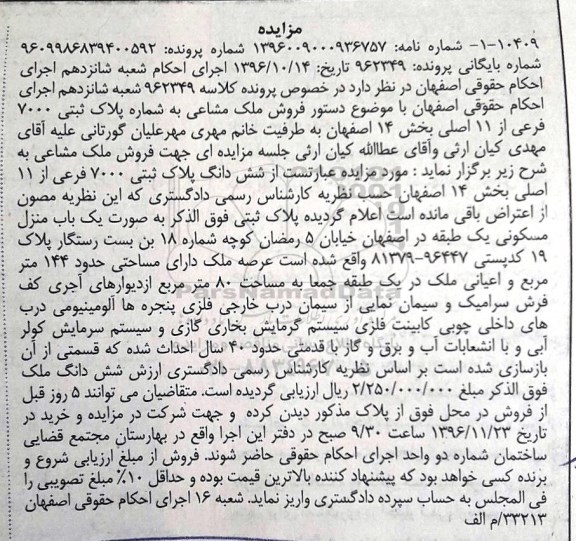 مزایده
۱-۱۰۴۰۹- شماره نامه: ۱۳۹۶۰۰۹۰۰۰۹۳۶۷۵۷ شماره پرونده: ۹۶۰۹۹۸۶۸۳۹۴۰۰۵۹۲
شماره بایگانی پرونده: ۹۶۲۳۴۹ تاریخ: ۱۳۹۶/۱۰/۱۴ اجرای احکام شعبه شانزدهم اجرای
احکام حقوقی اصفهان در نظر دارد در خصوص پرونده کلاسه ۹۶۲۳۴۹ شعبه شانزدهم اجرای
احکام حقوقی اصفهان با موضوع دستور فروش ملک مشاعی به شماره پلاک ثبتی ۷۰۰۰
فرعی از ۱۱ اصلی بخش ۱۴ اصفهان به طرفیت خانم مهری مهرعلیان گورتانی علیه آقای
مهدی کیان ارثی وآقای عطااالله کیان ارثی جلسه مزایده ای جهت فروش ملک مشاعی به
شرح زیر برگزار نماید : مورد مزایده عبارتست از شش دانگ پلاک ثبتی ۷۰۰۰ فرعی از ۱۱
اصلی بخش ۱۴ اصفهان حسب نظریه کارشناس رسمی دادگستری که این نظریه مصون
از اعتراض باقی مانده است اعلام گردیده پلاک ثبتی فوق الذکر به صورت یک باب منزل
مسکونی یک طبقه در اصفهان خیابان ۵ رمضان کوچه شماره ۱۸ بن بست رستگار پلاک
۱۹ کدپستی ۹۶۴۴۷-۸۱۳۷۹ واقع شده است عرصه ملک دارای مساحتی حدود ۱۴۴ متر
مربع و اعیانی ملک در یک طبقه جمعا به مساحت ۸۰ متر مربع ازدیوارهای آجری کف
فرش سرامیک و سیمان نمایی از سیمان درب خارجی فلزی پنجره ها آلومینیومی درب
های داخلی چوبی کابینت فلزی سیستم گرمایش بخاری گازی و سیستم سرمایش کولر
آبی و با انشعابات آب و برق و گاز با قدمتی حدود ۴۰ سال احداث شده که قسمتی از آن
بازسازی شده است بر اساس نظریه کارشناس رسمی دادگستری ارزش شش دانگ ملک
فوق الذکر مبلغ ۲/۲۵۰/۰۰۰/۰۰۰ ریال ارزیابی گردیده است. متقاضیان می توانند ۵ روز قبل
از فروش در محل فوق از پلاک مذکور دیدن کرده و جهت شرکت در مزایده و خرید در
تاریخ ۱۳۹۶/۱۱/۲۳ ساعت ۹/۳۰ صبح در دفتر این اجرا واقع در بهارستان مجتمع قضایی
ساختمان شماره دو واحد اجرای احکام حقوقی حاضر شوند. فروش از مبلغ ارزیابی شروع و
برنده کسی خواهد بود که پیشنهاد کننده بالاترین قیمت بوده و حداقل ۱۰٪ مبلغ تصویبی را
فی المجلس به حساب سپرده دادگستری واریز نماید. شعبه ۱۶ اجرای احکام حقوقی اصفهان
۳۳۲۱۳/م الف